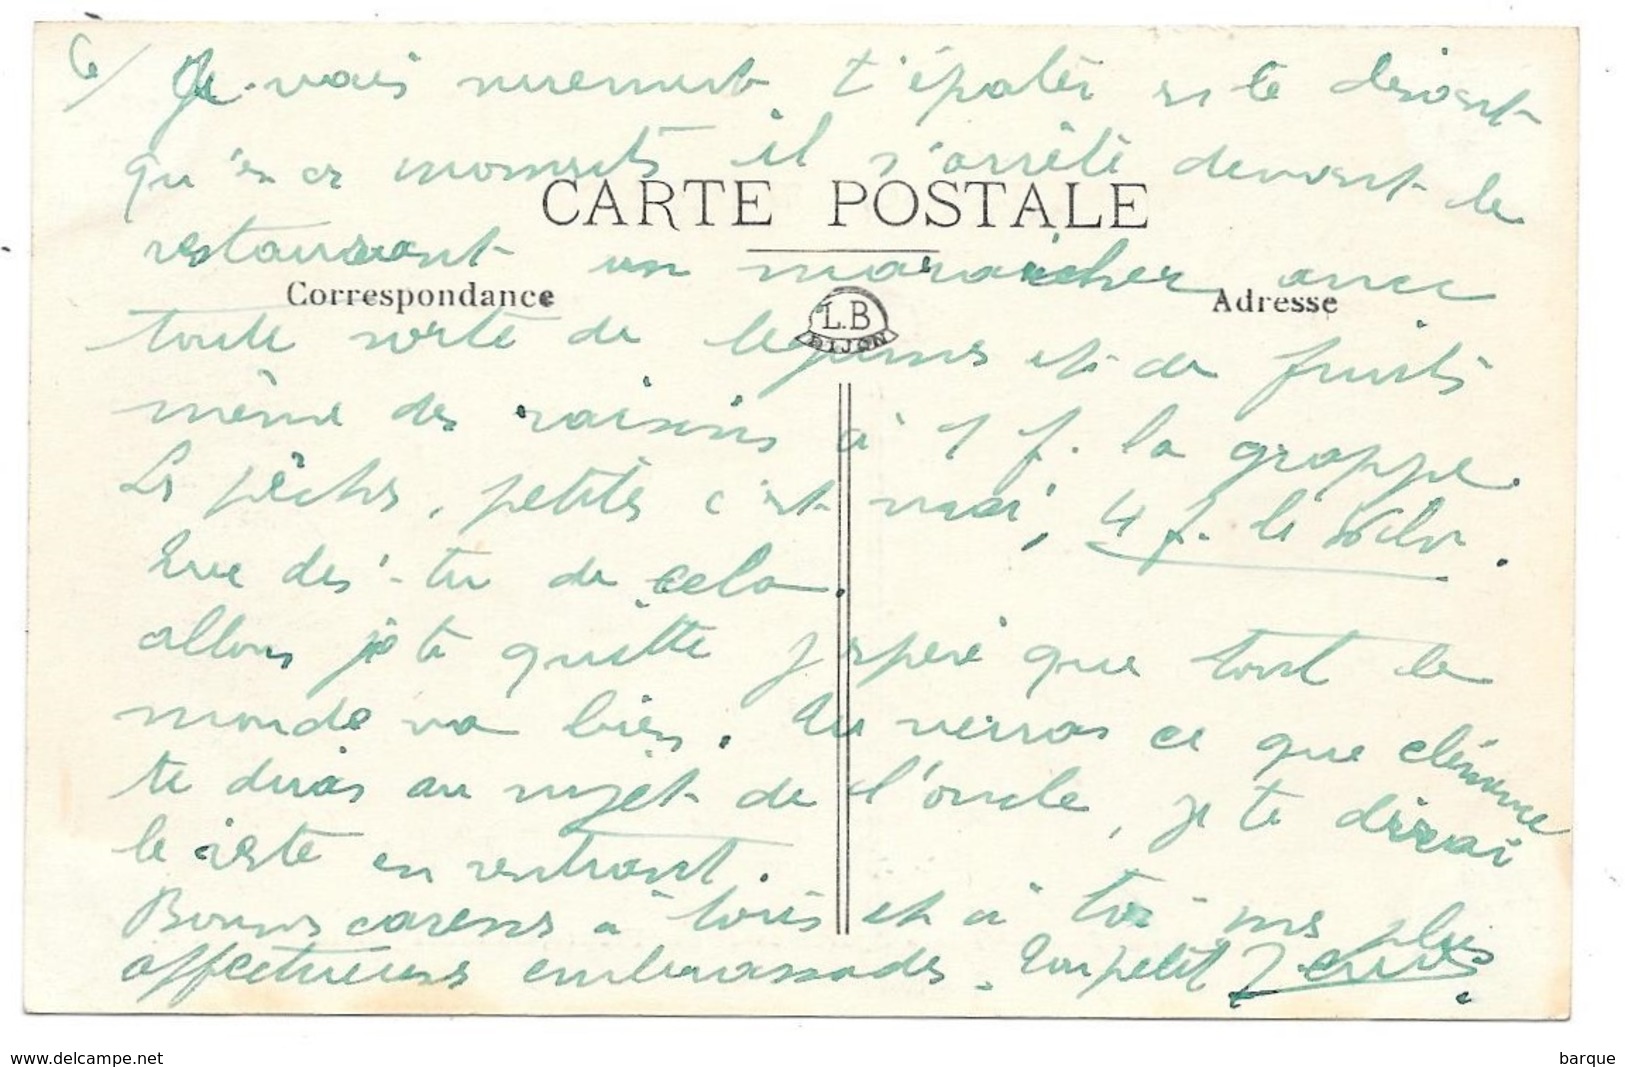 6/ Je vais surement t'épater si te disant
qu'en ce moments il s'arrête devant le
CARTE POSTALE
restaurant un maraicher avec
Correspondance
Adresse
L.B
DIJON
toute sorte de legumes et de fruits
même des raisins à 1 f. la grappe.
Les pêches, petites c'est vrai, 4 f. le kilo.
Que dis-tu de cela.
allons je te quitte j'espère que tout le
monde va bien. Tu verras ce que clémence
te diras au sujet de l'oncle, je te dirrai
le reste en rentrant.
Bonnes caresses à tous et à toi mes plus
affectueuses embrassades. Ton petit
www.delcampe.net
barque